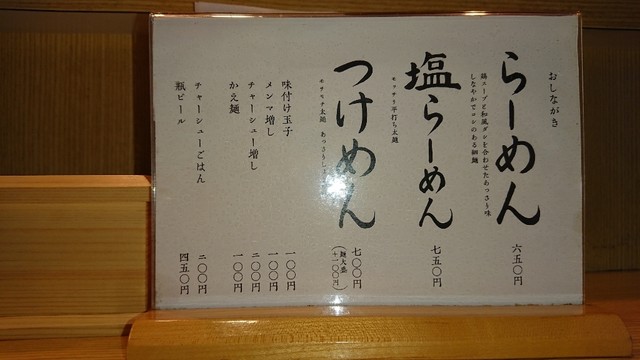 おしながき
らーめん 六五〇円
鶏スープと和風ダシを合わせたあっさり味
しなやかでコシのある細麺
塩らーめん 七五〇円
モッチリ平打ち太麺
つけめん 七〇〇円
(麺大盛 +一〇〇円)
モチモチ太麺 あっさり
味付け玉子 一〇〇円
メンマ増し 一〇〇円
チャーシュー増し 二〇〇円
かえ麺 一〇〇円
チャーシューごはん 二〇〇円
瓶ビール 四五〇円